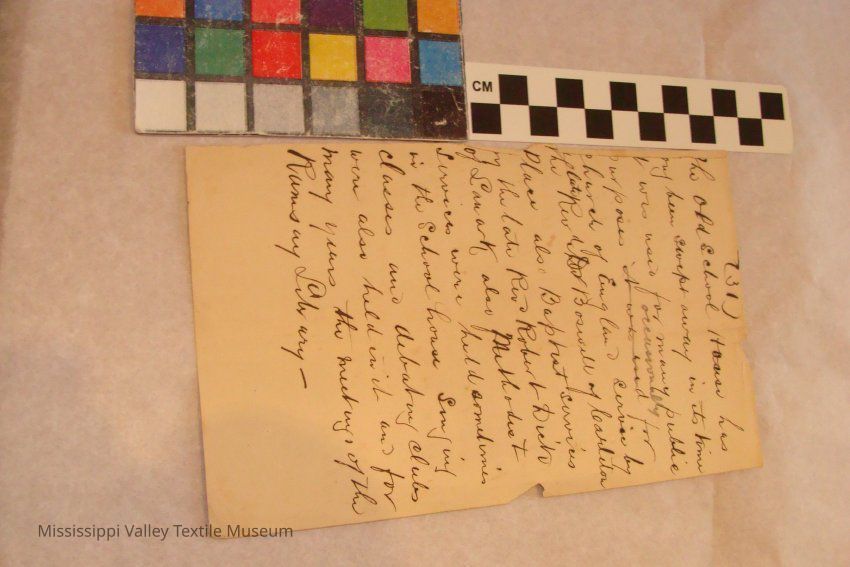 (31)
The Old School House has
long been swept away in its time
it was used for many public
purposes it was used for
occasionally
Church of England service by
the late Revd Dr Boswell of Carleton
Place also Baptist services
by the late Revd Robert Dick
of Lanark also Methodist
Services were held sometimes
in the School house Singing
classes and debating clubs
were also held in it and for
many years the meetings of the
Ramsay Library —
CM
Mississippi Valley Textile Museum